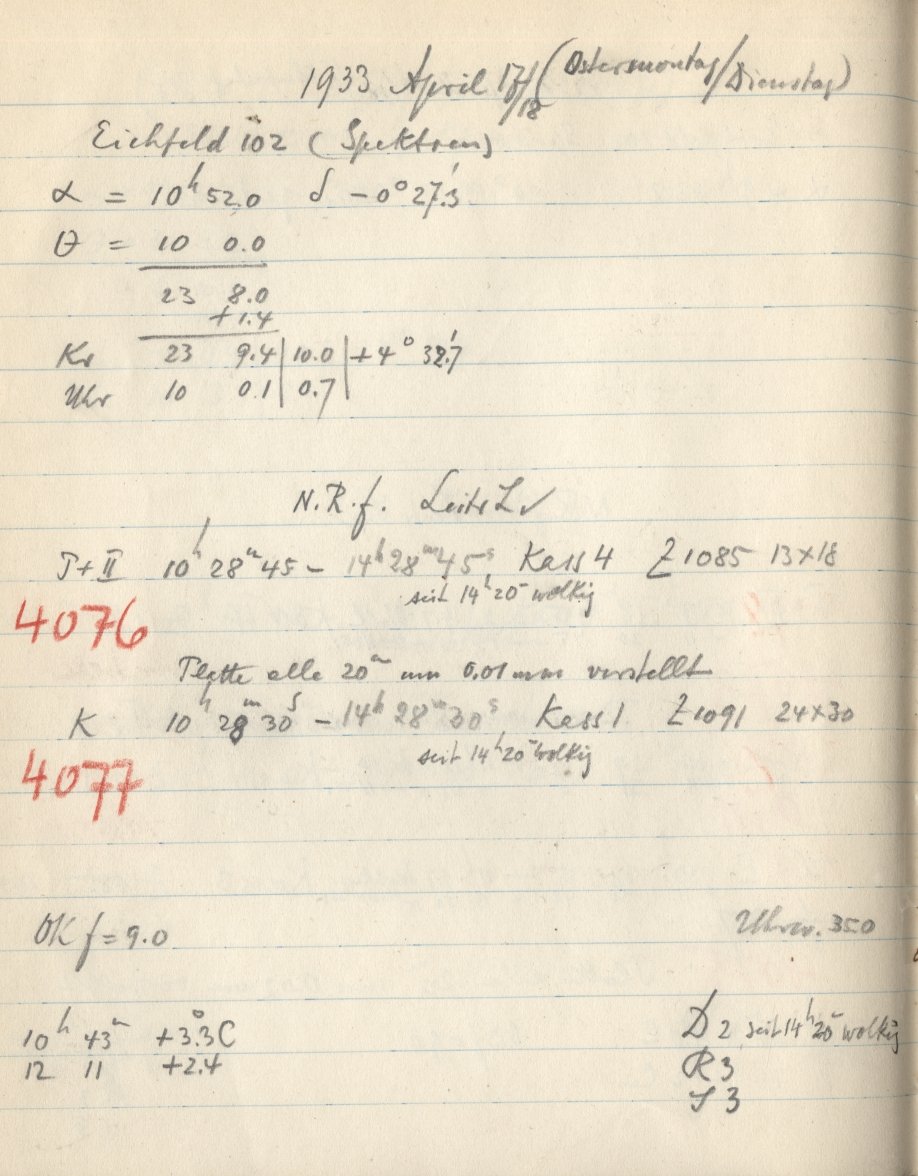 1933 April 17/18 (Ostermontag/Dienstag)
Eichfeld 102 (Spektren)
α = 10h 52.0 δ -0° 27.'3
θ = 10 0.0
23 8.0
+1.4
Kr 23 9.4 | 10.0 | +4° 32.'7
Uhr 10 0.1 | 0.7 |
N.R.f. Leitr L ✓
I+II 10h 28m 45 - 14h 28m 45s Kass 4 Z 1085 13x18
seit 14h 20m wolkig
4076
Platte alle 20m um 0.01 mm verstellt
K 10h 28m 30s - 14h 28m 30s Kass 1 Z 1091 24x30
seit 14h 20m wolkig
4077
OK f = 9.0 Uhrw. 350
10h 43m +3.°3C D 2 seit 14h 20m wolkig
12 11 +2.4 R 3
S 3